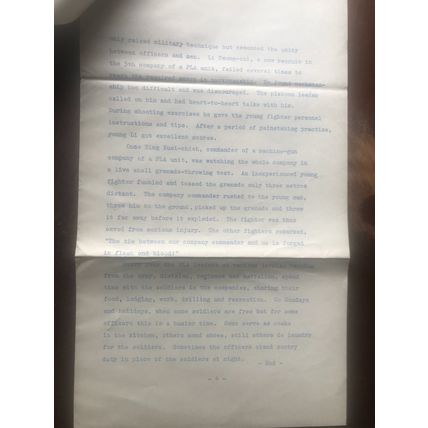 only raised military technique but cemented the unity
between officers and men. Li Teung-chi, a new recruit in
the 5th company of a PLA unit, failed several times to
reach the required score in marksmanship. He found marksman-
ship too difficult and was discouraged. The platoon leader
called on him and had heart-to-heart talks with him.
During shooting exercises he gave the young fighter personal
instructions and tips. After a period of painstaking practise,
young Li got excellent scores.
Once Ting Kuei-chieh, commander of a machine-gun
company of a PLA unit, was watching the whole company in
a live shell grenade-throwing test. An inexperienced young
fighter fumbled and tossed the grenade only three metres
distant. The company commander rushed to the young man,
threw him to the ground, picked up the grenade and threw
it far away before it exploded. The fighter was thus
saved from serious injury. The other fighters remarked,
"The tie between our company commander and us is forged
in flesh and blood!"
Every year the PLA leaders at various levels,
from the army, division, regiment and battalion, spend
time with the soldiers in the companies, sharing their
food, lodging, work, drilling and recreation. On Sundays
and holidays, when some soldiers are free but for some
officers this is a busier time. Some serve as cooks
in the kitchen, others mend shoes, still others do laundry
for the soldiers. Sometimes the officers stand sentry
duty in place of the soldiers at night. - End -
- 4 -